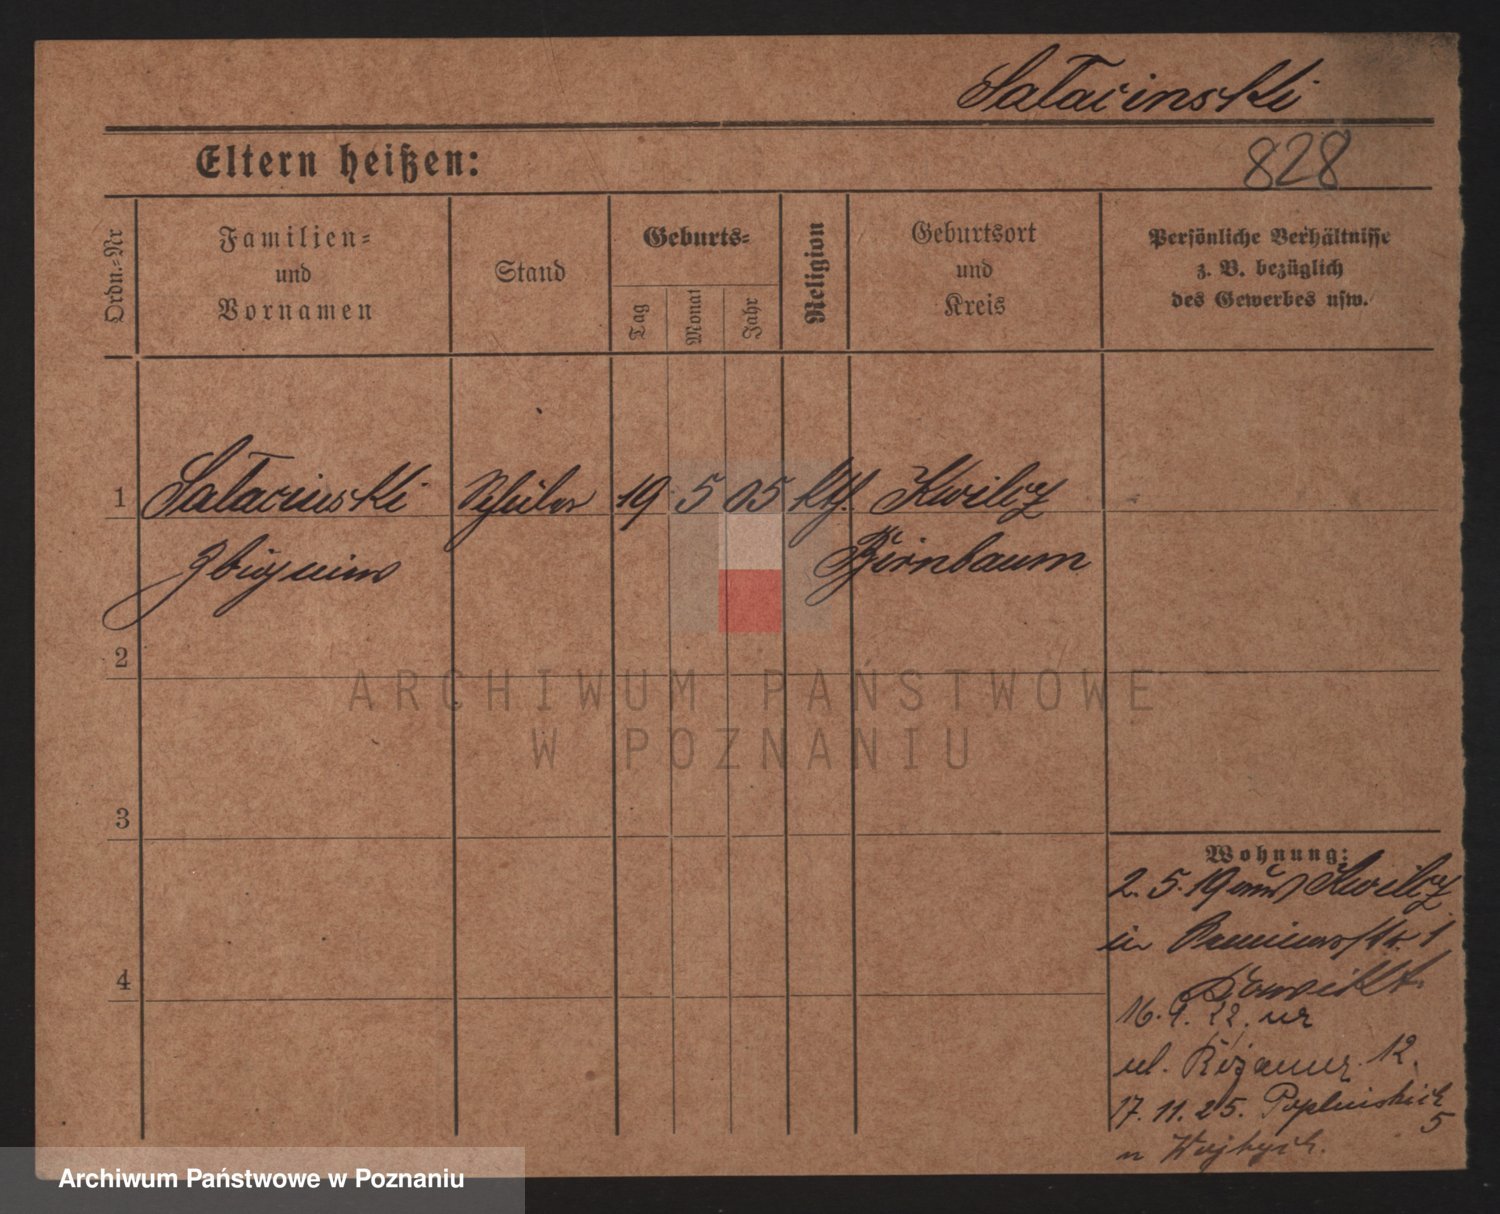 Sałacinski
828
Eltern heißen:
Ordn.-Nr
Familien-
und
Vornamen
Stand
Geburts-
Tag
Monat
Jahr
Religion
Geburtsort
und
Kreis
Persönliche Verhältnisse
z. B. bezüglich
des Gewerbes usw.
1
Sałacinski Schüler 19 5 05 kth. Kwilcz
Zbigniew Birnbaum
2
ARCHIWUM PAŃSTWOWE
W POZNANIU
3
Wohnung:
2. 5. 19 aus Kwilcz
in 1
4
16. 9. 22. ur
ul. 12.
17. 11. 25. Poplinskich 5
u
Archiwum Państwowe w Poznaniu